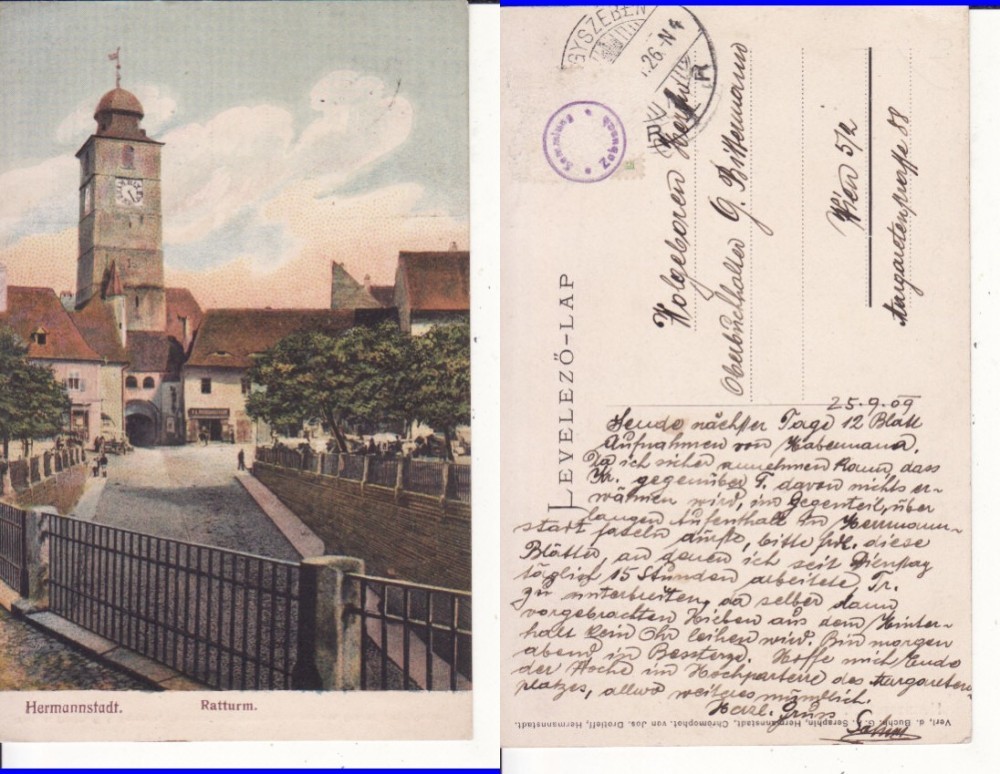 Hermannstadt.
Ratturm.
GYSZEBEN
26.-N4
R
Sammlung
LEVELEZŐ-LAP
Wolgeboren Herrn
Oberbuchhalter G. Bittermann
Wien 5/2
Margaretenstrasse 88
25.9.09
Sende nächster Tage 12 Blatt
Aufnahmen von Habermann.
Da ich sicher annehmen kann, dass
gegenüber T. davon nichts er-
wähnen wird, im Gegenteil, über
langen Aufenthalt in Herrmann-
stadt faseln dürfte, bitte frdl. diese
Blätter, an denen ich seit Dienstag
täglich 15 Stunden arbeitete, Tr.
zu unterbreiten, da selber dann
vorgebrachten Hieben aus dem Hinter-
halt kein Ohr leihen wird. Bin morgen
abend in Besterze. Hoffe mich Ende
der Woche im Hochparterre des Margareten-
platzes, allwo weiteres mündlich.
Herzl. Gruss
Verl. d. Buchh. G. A. Seraphin, Hermannstadt. Chromophot. von Jos. Drotleff, Hermannstadt.